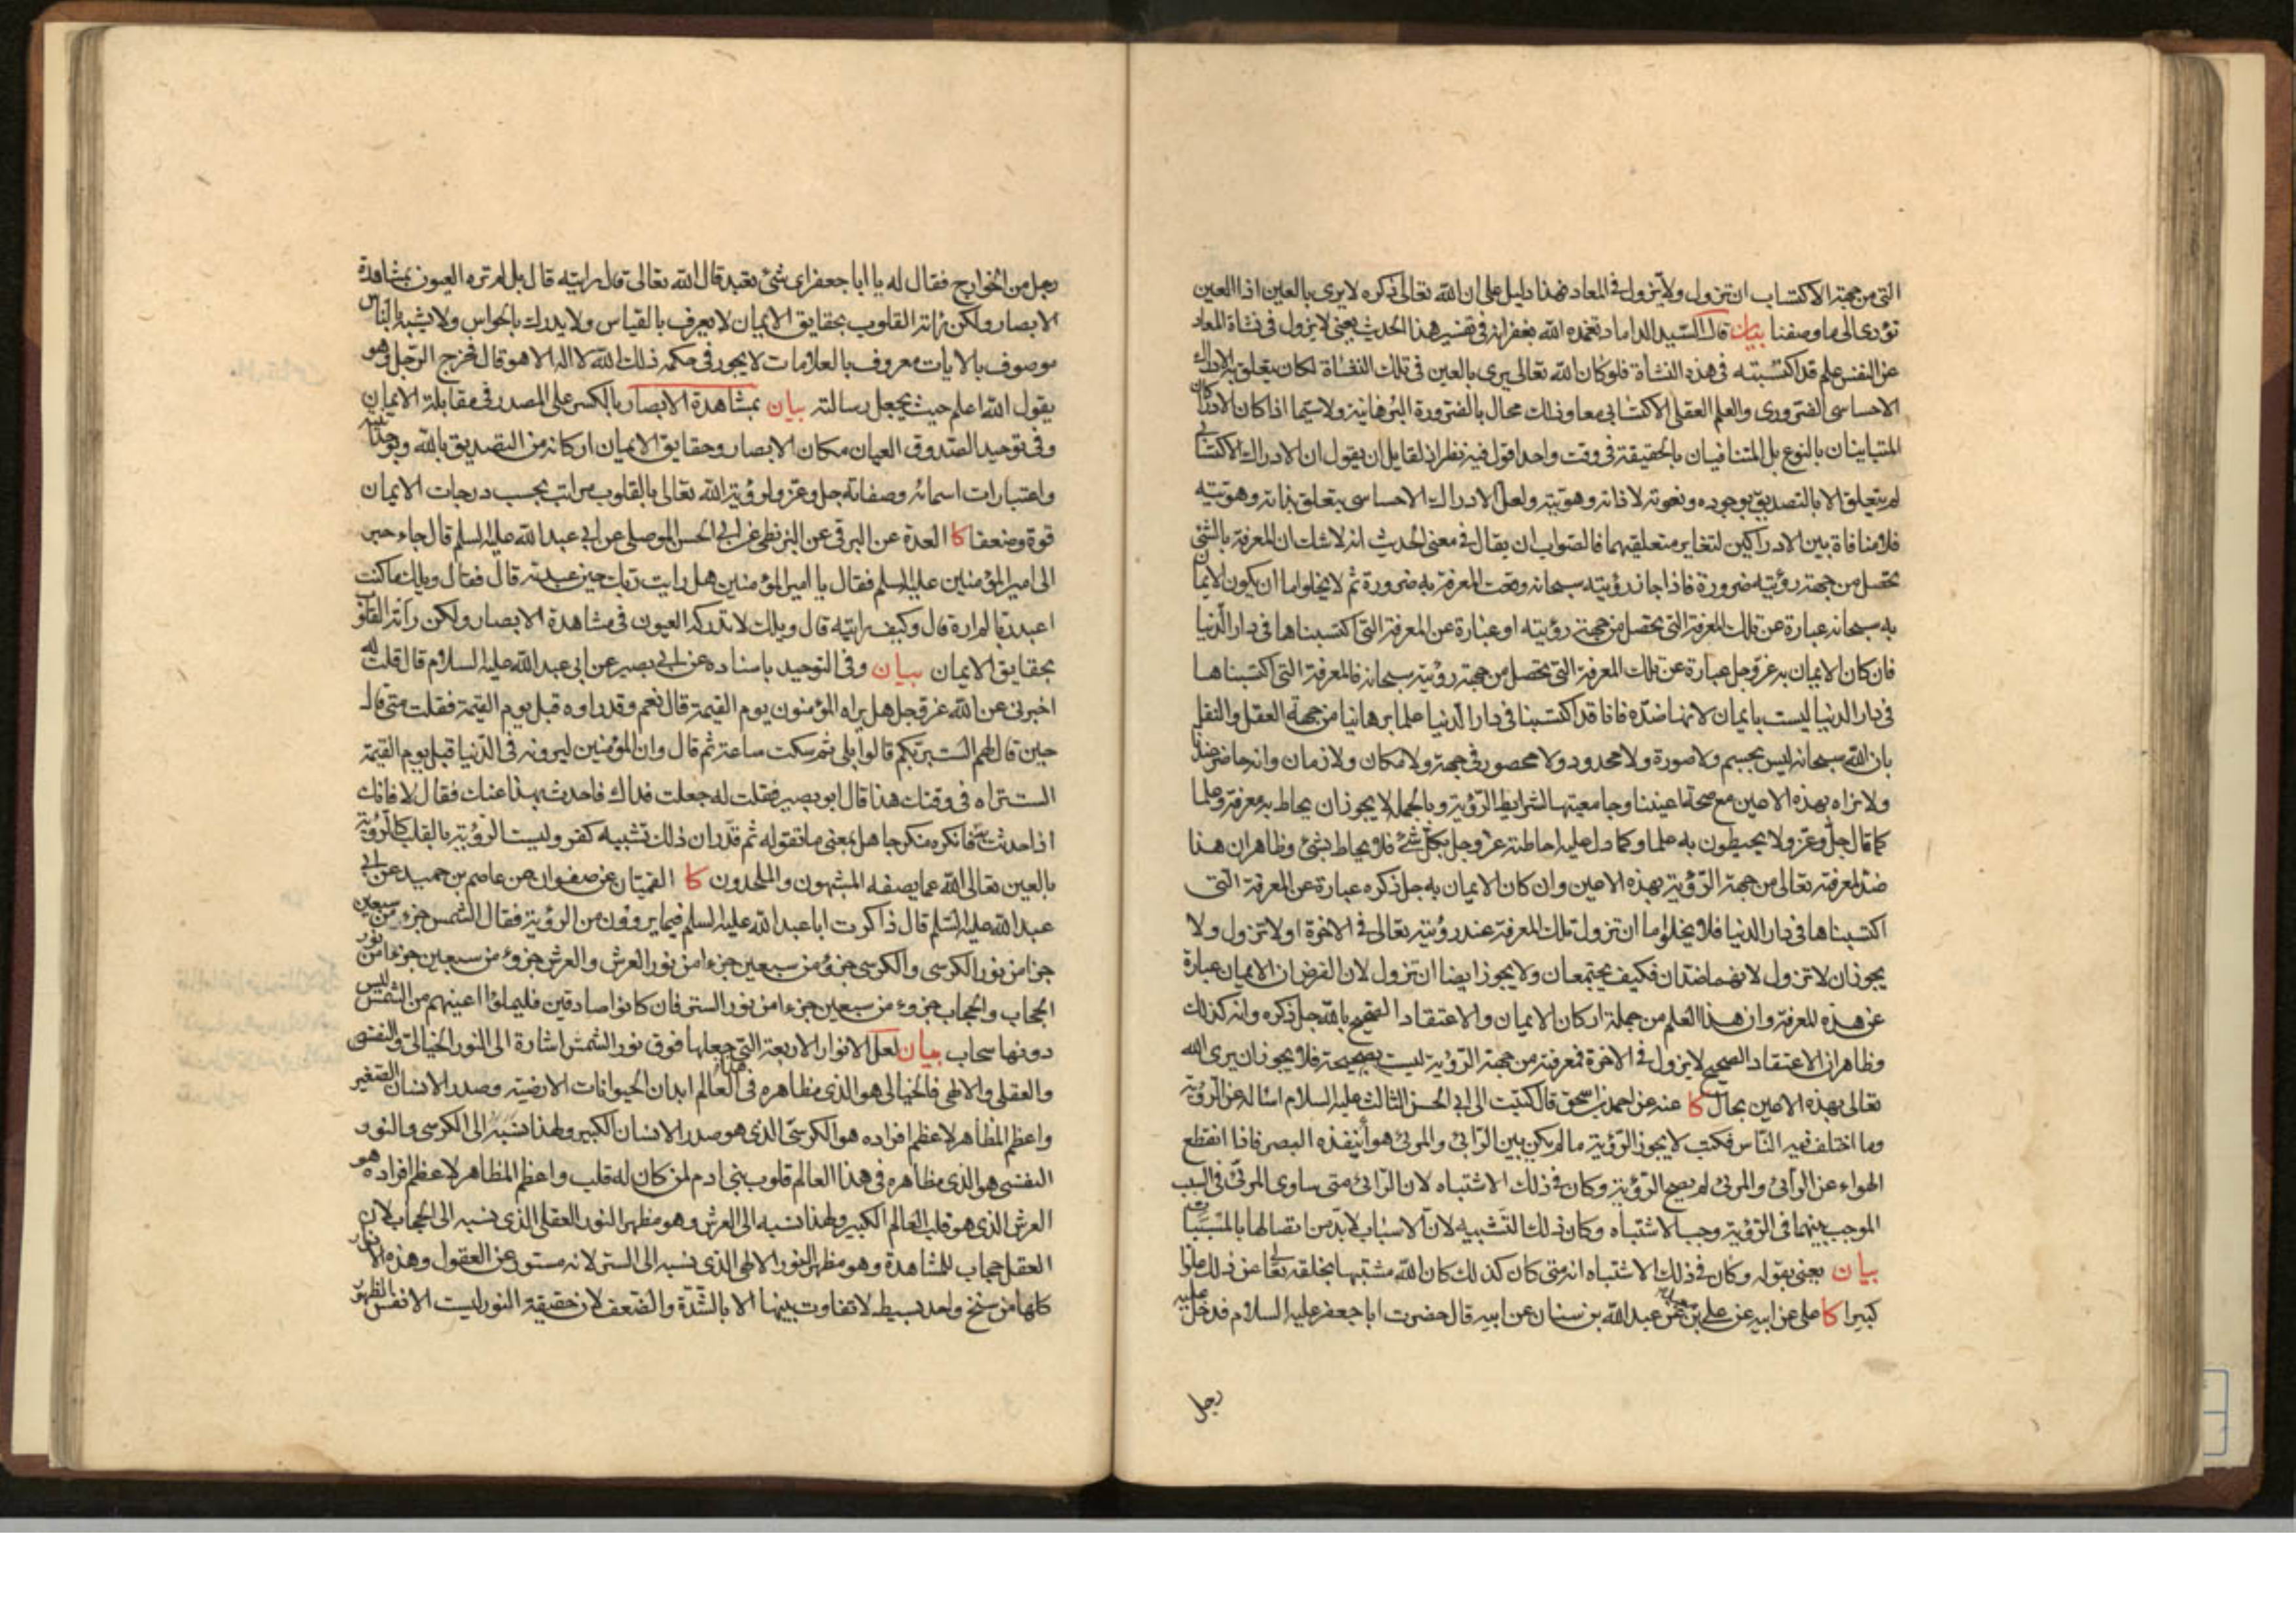 التى من جهة الاكتساب ان تزول ولا يزول فى المعاد فهذا دليل على ان الله تعالى ذكره لا يرى بالعين اذا العين
تؤدى الى ما وصفنا بيان قال السيد الداماد تغمده الله بغفرانه فى تفسير هذا الحديث يعنى لا يزول فى نشاة المعاد
عن النفس علم قد اكتسبته فى هذه النشاة فلو كان الله تعالى يرى بالعين فى تلك النشاة لكان يتعلق به الادراك
الاحساسى الضرورى والعلم العقلى الاكتسابى معا وذلك محال بالضرورة البرهانية ولا سيما اذا كان الادراكان
المتباينان بالنوع بل المتنافيان بالحقيقة فى وقت واحد اقول فيه نظر اذ لقايل ان يقول ان الادراك الاكتسابى
لم يتعلق الا بالتصديق بوجوده ونعوته لا ذاته وهويته ولعل الادراك الاحساسى يتعلق بذاته وهويته
فلا منافاة بين الادراكين لتغاير متعلقيهما فالصواب ان يقال فى معنى الحديث انه لا شك ان المعرفة بالشئ
تحصل من جهة رؤيته ضرورة فاذا جاز رؤيته سبحانه وقعت المعرفة به ضرورة ثم لا يخلو اما ان يكون الايمان
به سبحانه عبارة عن تلك المعرفة التى تحصل من جهة رؤيته او عبارة عن المعرفة التى اكتسبناها فى دار الدنيا
فان كان الايمان به عز وجل عبارة عن تلك المعرفة التى تحصل من جهة رؤيته سبحانه فالمعرفة التى اكتسبناها
فى دار الدنيا ليست بايمان لانها ضده فانا قد اكتسبنا فى دار الدنيا علما برهانيا من جهة العقل والنقل
بان الله سبحانه ليس بجسم ولا صورة ولا محدود ولا محصور فى جهة ولا مكان ولا زمان وانه حاضر عندنا
ولا نراه بهذه الاعين مع صحة اعيننا وجامعيتها لشرايط الرؤية وبالجملة لا يجوز ان يحاط به معرفة وعلما
كما قال جل وعز ولا يحيطون به علما وكما دل عليه احاطته عز وجل بكل شئ فلا يحاط بشئ وظاهر ان هذا
ضد لمعرفته تعالى من جهة الرؤية بهذه الاعين وان كان الايمان به جل ذكره عبارة عن المعرفة التى
اكتسبناها فى دار الدنيا فلا يخلو اما ان تزول تلك المعرفة عند رؤيته تعالى فى الاخرة او لا تزول ولا
يجوز ان لا تزول لانهما ضدان فكيف يجتمعان ولا يجوز ايضا ان تزول لان الفرض ان الايمان عبارة
عن هذه المعرفة وان هذا العلم من جملة اركان الايمان والاعتقاد الصحيح بالله جل ذكره وانه كذلك
وظاهر ان الاعتقاد الصحيح لا يزول فى الاخرة فمعرفته من جهة الرؤية ليست بصحيحة فلا يجوز ان يرى الله
تعالى بهذه الاعين بحال كا عنه عن احمد بن اسحق قال كتبت الى ابى الحسن الثالث عليه السلام اساله عن الرؤية
وما اختلف فيه الناس فكتب لا يجوز الرؤية ما لم يكن بين الرائى والمرئى هواء ينفذه البصر فاذا انقطع
الهواء عن الرائى والمرئى لم يصح الرؤية وكان فى ذلك الاشتباه لان الرائى متى ساوى المرئى فى السبب
الموجب بينهما فى الرؤية وجب الاشتباه وكان ذلك التشبيه لان الاسباب لا بد من اتصالها بالمسببات
بيان يعنى بقوله وكان فى ذلك الاشتباه انه متى كان كذلك كان الله مشتبها بخلقه تعالى عن ذلك علوا
كبيرا كا على عن ابيه عن على بن معبد عن عبد الله بن سنان عن ابيه قال حضرت ابا جعفر عليه السلام فدخل عليه
رجل
رجل من الخوارج فقال له يا ابا جعفر اى شئ تعبد قال الله تعالى قال رايته قال بل لم تره العيون بمشاهدة
الابصار ولكن راته القلوب بحقايق الايمان لا يعرف بالقياس ولا يدرك بالحواس ولا يشبه بالناس
موصوف بالايات معروف بالعلامات لا يجور فى حكمه ذلك الله لا اله الا هو قال فخرج الرجل وهو
يقول الله اعلم حيث يجعل رسالته بيان بمشاهدة الابصار بالكسر على المصدر فى مقابلة الايمان
وفى توحيد الصدوق العيان مكان الابصار وحقايق الايمان اركانه من التصديق بالله وبوحدانيته
واعتبارات اسمائه وصفاته جل وعز ولرؤية الله تعالى بالقلوب مراتب بحسب درجات الايمان
قوة وضعفا كا العدة عن البرقى عن البزنطى عن ابى الحسن الموصلى عن ابى عبد الله عليه السلم قال جاء حبر
الى امير المؤمنين عليه السلم فقال يا امير المؤمنين هل رايت ربك حين عبدته قال فقال ويلك ما كنت
اعبد ربا لم اره قال وكيف رايته قال ويلك لا تدركه العيون فى مشاهدة الابصار ولكن رأته القلوب
بحقايق الايمان بيان وفى التوحيد باسناده عن ابى بصير عن ابى عبد الله عليه السلام قال قلت له
اخبرنى عن الله عز وجل هل يراه المؤمنون يوم القيمة قال نعم وقد راوه قبل يوم القيمة فقلت متى قال
حين قال لهم الست بربكم قالوا بلى ثم سكت ساعة ثم قال وان المؤمنين ليرونه فى الدنيا قبل يوم القيمة
الست تراه فى وقتك هذا قال ابو بصير فقلت له جعلت فداك فاحدث بهذا عنك فقال لا فانك
اذا حدثت به فانكره منكر جاهل بمعنى ما تقوله ثم قدر ان ذلك تشبيه كفر وليست الرؤية بالقلب كالرؤية
بالعين تعالى الله عما يصفه المشبهون والملحدون كا القميان عن صفوان عن عاصم بن حميد عن ابى
عبد الله عليه السلم قال ذاكرت ابا عبد الله عليه السلم فيما يروون من الرؤية فقال الشمس جزء من سبعين
جزءا من نور الكرسى والكرسى جزء من سبعين جزءا من نور العرش والعرش جزء من سبعين جزءا من نور
الحجاب والحجاب جزء من سبعين جزءا من نور الستر فان كانوا صادقين فليملؤا اعينهم من الشمس ليس
دونها سحاب بيان لعل الانوار الاربعة التى جعلها فوق نور الشمس اشارة الى النور الخيالى والنفسى
والعقلى والالهى فالخيالى هو الذى مظاهره فى هذا العالم ابدان الحيوانات الارضية وصدر الانسان الصغير
واعظم المظاهر لاعظم افراده هو الكرسى الذى هو صدر الانسان الكبير ولهذا نسبه الى الكرسى والنور
النفسى هو الذى مظاهره فى هذا العالم قلوب بنى ادم لمن كان له قلب واعظم المظاهر لاعظم افراده هو
العرش الذى هو قلب العالم الكبير ولهذا نسبه الى العرش وهو مظهر النور العقلى الذى نسبه الى الحجاب لان
العقل حجاب للمشاهدة وهو مظهر النور الالهى الذى نسبه الى الستر لانه مستور عن العقول وهذه الانوار
كلها من سنخ واحد بسيط لا تفاوت بينها الا بالشدة والضعف لان حقيقة النور ليست الا نفس الظهور